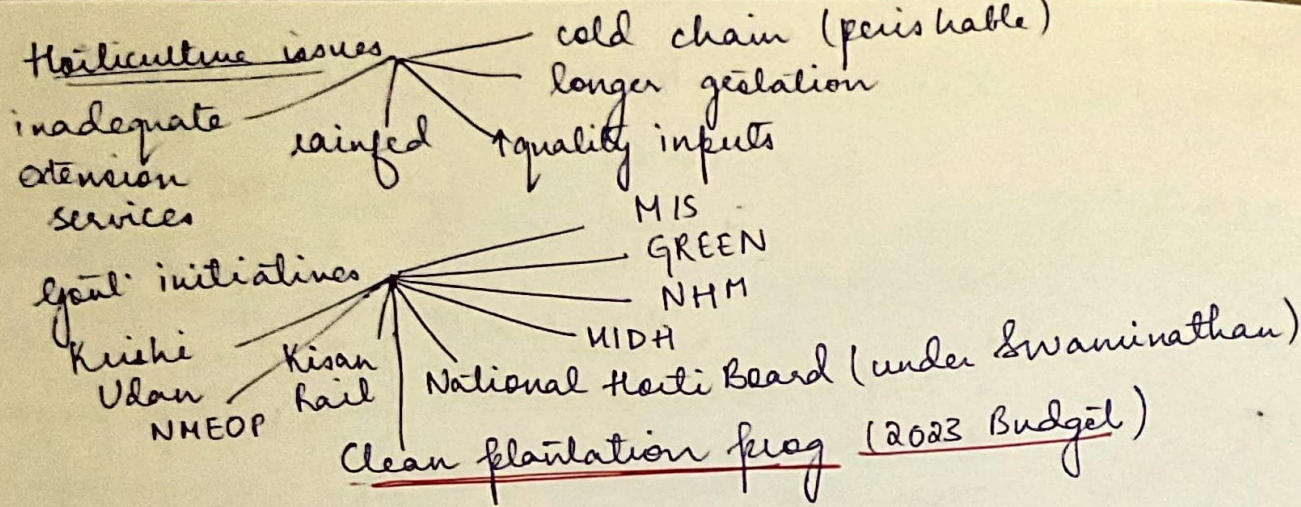 Horticulture issues
cold chain (perishable)
longer gestation
↑quality inputs
rainfed
inadequate
extension
services
Govt initiatives
MIS
GREEN
NHM
MIDH
National Horti Board (under Swaminathan)
Clean plantation prog (2023 Budget)
Kisan
Rail
NMEOP
Krishi
Udan